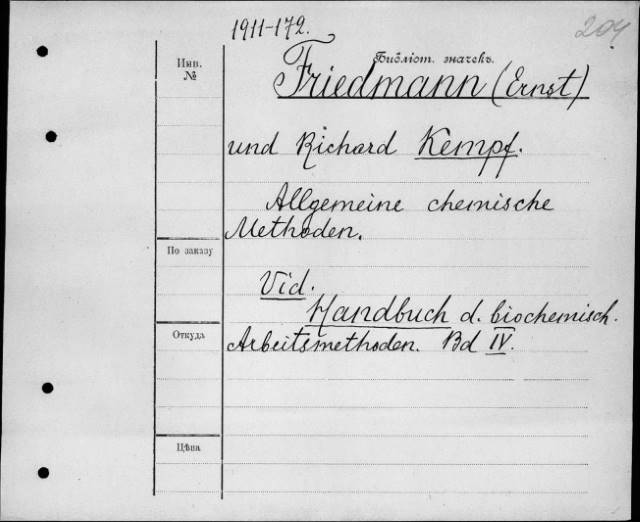 1911-172.
204
Библіот. значекъ.
Инв.
№
Friedmann (Ernst)
und Richard Kempf.
Allgemeine chemische
Methoden.
По заказу
Vid.
Handbuch d. biochemisch.
Откуда
Arbeitsmethoden. Bd IV.
Цѣна